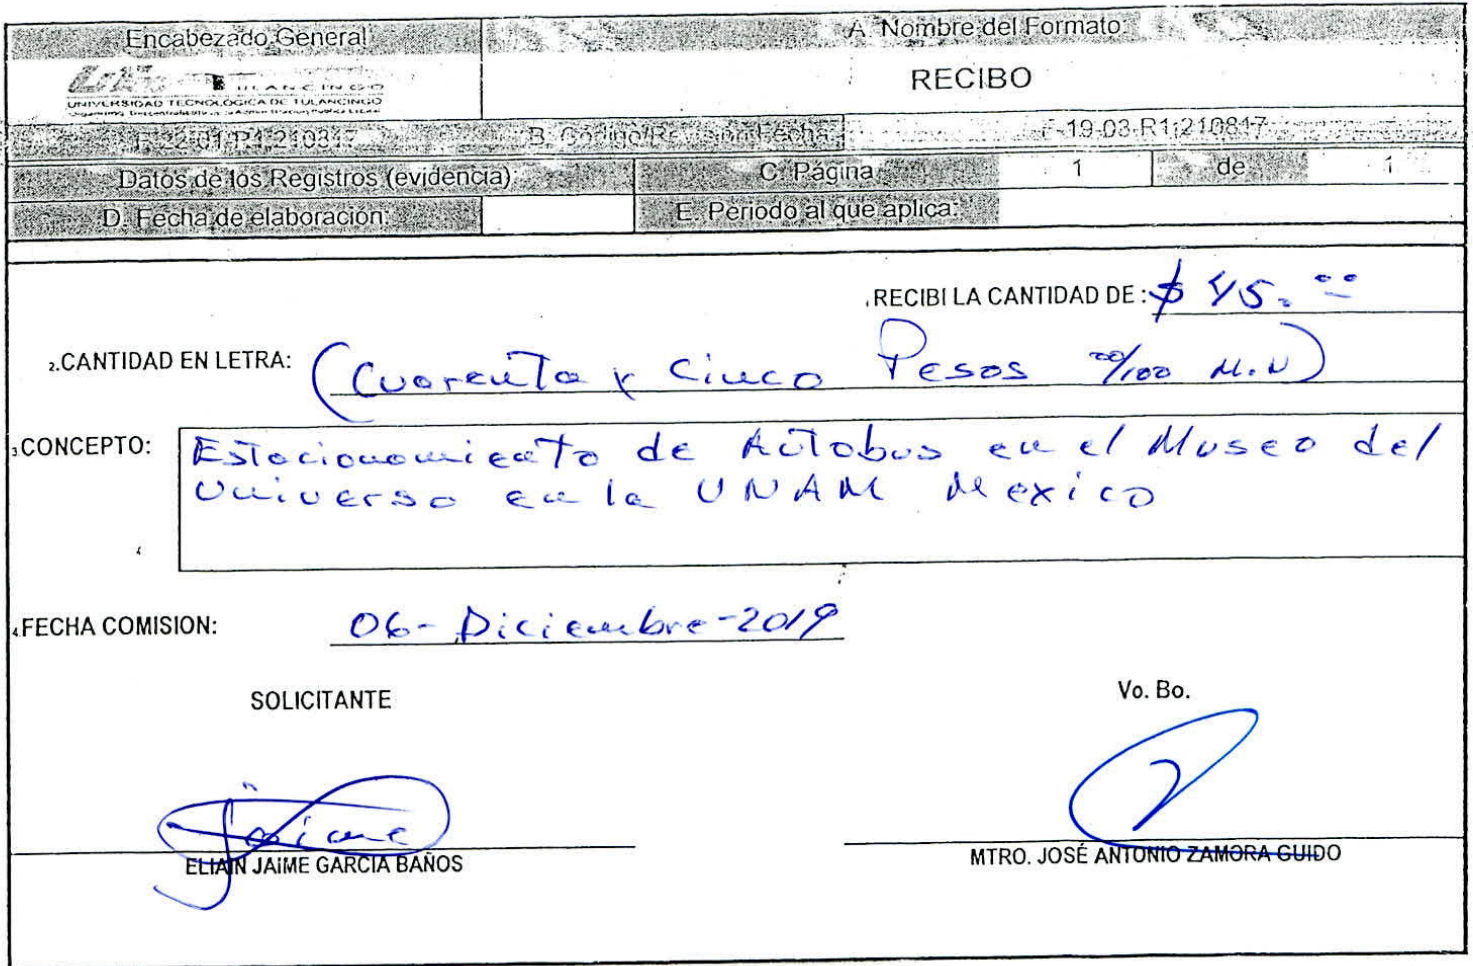 Encabezado General
A. Nombre del Formato:
TULANCINGO
UNIVERSIDAD TECNOLÓGICA DE TULANCINGO
RECIBO
F-22-01/R1:210817 B. Código/Revisión Fecha: F-19-03-R1;210817
Datos de los Registros (evidencia) C. Página 1 de 1
D. Fecha de elaboración: E. Periodo al que aplica:
1.RECIBI LA CANTIDAD DE: $ 45.00
2.CANTIDAD EN LETRA: (Cuarenta y Cinco Pesos 00/100 M.N)
3.CONCEPTO: Estacionamiento de Autobus en el Museo del
Universo en la UNAM Mexico
4.FECHA COMISION: 06-Diciembre-2019
SOLICITANTE Vo. Bo.
Jaime
ELIAIN JAIME GARCIA BAÑOS MTRO. JOSÉ ANTONIO ZAMORA GUIDO